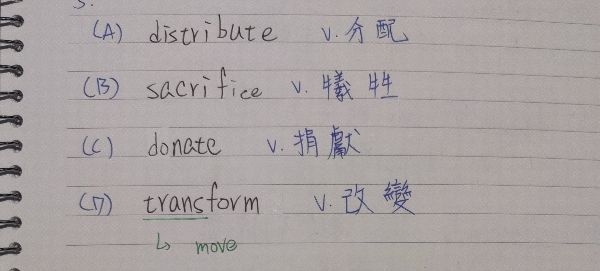 (A) distribute v. 分配
(B) sacrifice v. 犧牲
(C) donate v. 捐獻
(D) transform v. 改變
↳ move